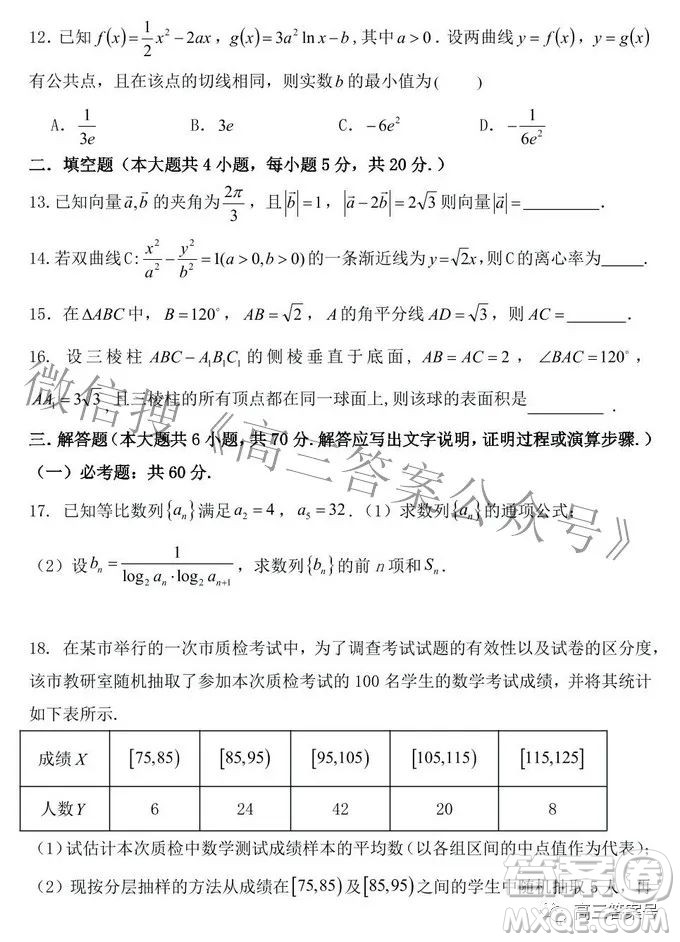 12.已知 f(x)=1/2 x²−2ax，g(x)=3a² ln x−b,其中 a>0．设两曲线 y=f(x)，y=g(x)
有公共点，且在该点的切线相同，则实数b 的最小值为(　　)
A．1/(3e)　B．3e　C．−6e²　D．−1/(6e²)
二．填空题（本大题共 4 小题，每小题 5 分，共 20 分.）
13.已知向量 a⃗,b⃗ 的夹角为 2π/3，且|b⃗|=1，|a⃗−2b⃗|=2√3 则向量|a⃗|=________．
14.若双曲线 C: x²/a²−y²/b²=1(a>0,b>0) 的一条渐近线为 y=√2x,则 C 的离心率为_____.
15．在 ΔABC 中，B=120°，AB=√2，A 的角平分线 AD=√3，则 AC=_______．
16． 设三棱柱 ABC−A₁B₁C₁ 的侧棱垂直于底面, AB=AC=2 ，∠BAC=120°，
AA₁=3√3,且三棱柱的所有顶点都在同一球面上,则该球的表面积是________．
三.解答题（本大题共 6 小题,共 70 分.解答应写出文字说明,证明过程或演算步骤.）
（一）必考题：共 60 分.
17．已知等比数列{aₙ}满足 a₂=4，a₅=32．（1）求数列{aₙ}的通项公式;
（2）设 bₙ=1/(log₂ aₙ·log₂ aₙ₊₁)，求数列{bₙ}的前 n 项和 Sₙ．
18．在某市举行的一次市质检考试中，为了调查考试试题的有效性以及试卷的区分度，
该市教研室随机抽取了参加本次质检考试的 100 名学生的数学考试成绩，并将其统计
如下表所示.
成绩 X　[75,85)　[85,95)　[95,105)　[105,115)　[115,125]
人数 Y　6　24　42　20　8
（1）试估计本次质检中数学测试成绩样本的平均数（以各组区间的中点值作为代表）；
（2）现按分层抽样的方法从成绩在[75,85)及[85,95)之间的学生中随机抽取 5 人，再
微信搜《高三答案公众号》
答案圈
MXQE.COM
高三答案号